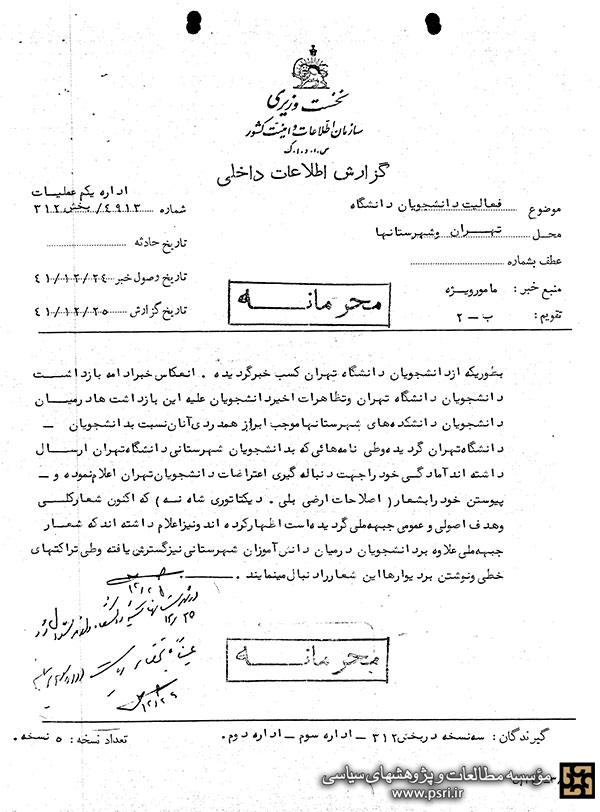 نخست وزیری
سازمان اطلاعات و امنیت کشور
س.ا.و.ا.ک
گزارش اطلاعات داخلی
اداره یکم عملیات
موضوع فعالیت دانشجویان دانشگاه
شماره ۴۹۱۳/بخش ۳۱۲
محل تهران وشهرستانها
تاریخ حادثه
عطف بشماره
تاریخ وصول خبر ۴۱/۱۲/۲۴
منبع خبر: مامورویژه
محرمانه
تاریخ گزارش ۴۱/۱۲/۲۵
تقویم: ب-۲
بطوریکه ازدانشجویان دانشگاه تهران کسب خبرگردیده . انعکاس خبرادامه بازداشت
دانشجویان دانشگاه تهران وتظاهرات اخیردانشجویان علیه این بازداشت هادرمیان
دانشجویان دانشکده‌های شهرستانهاموجب ابراز همدردی آنان نسبت بدانشجویان –
دانشگاه‌تهران گردیده‌وطی نامه‌هائی‌که بدانشجویان شهرستانی دانشگاه‌تهران ارسال
داشته اندآمادگی خودراجهت دنباله گیری اعتراضات دانشجویان‌تهران اعلام‌نموده و –
پیوستن خودرابشعار (اصلاحات ارضی بلی . دیکتاتوری شاه نه) که اکنون شعارکلی
وهدف اصولی و عمومی جبهه‌ملی گردیده‌است اظهارکرده اندونیزاعلام داشته اندکه شعار
جبهه‌ملی‌علاوه بردانشجویان درمیان دانش‌آموزان شهرستانی نیزگسترش‌یافته وطی تراکتهای
خطی ونوشتن بردیوارهااین شعاررادنبال‌مینمایند .
۱۲/۲۵
محرمانه
۱۲/۲۹
گیرندگان: سه‌نسخه دربخش ۳۱۲ – اداره سوم – اداره دوم .
تعداد نسخه: ۵ نسخه .
مؤسسه مطالعات و پژوهشهای سیاسی
www.psri.ir